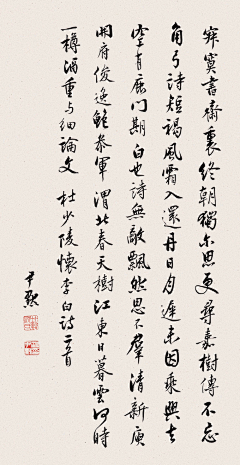 寂寞書齋裏終朝獨尔思更尋嘉樹傳不忘
角弓詩短褐風霜入還丹日月遲未因乘興去
空有鹿門期白也詩無敵飄然思不羣清新庾
開府俊逸鮑參軍渭北春天樹江東日暮雲何時
一樽酒重与細論文 杜少陵懷李白詩二首
尹默